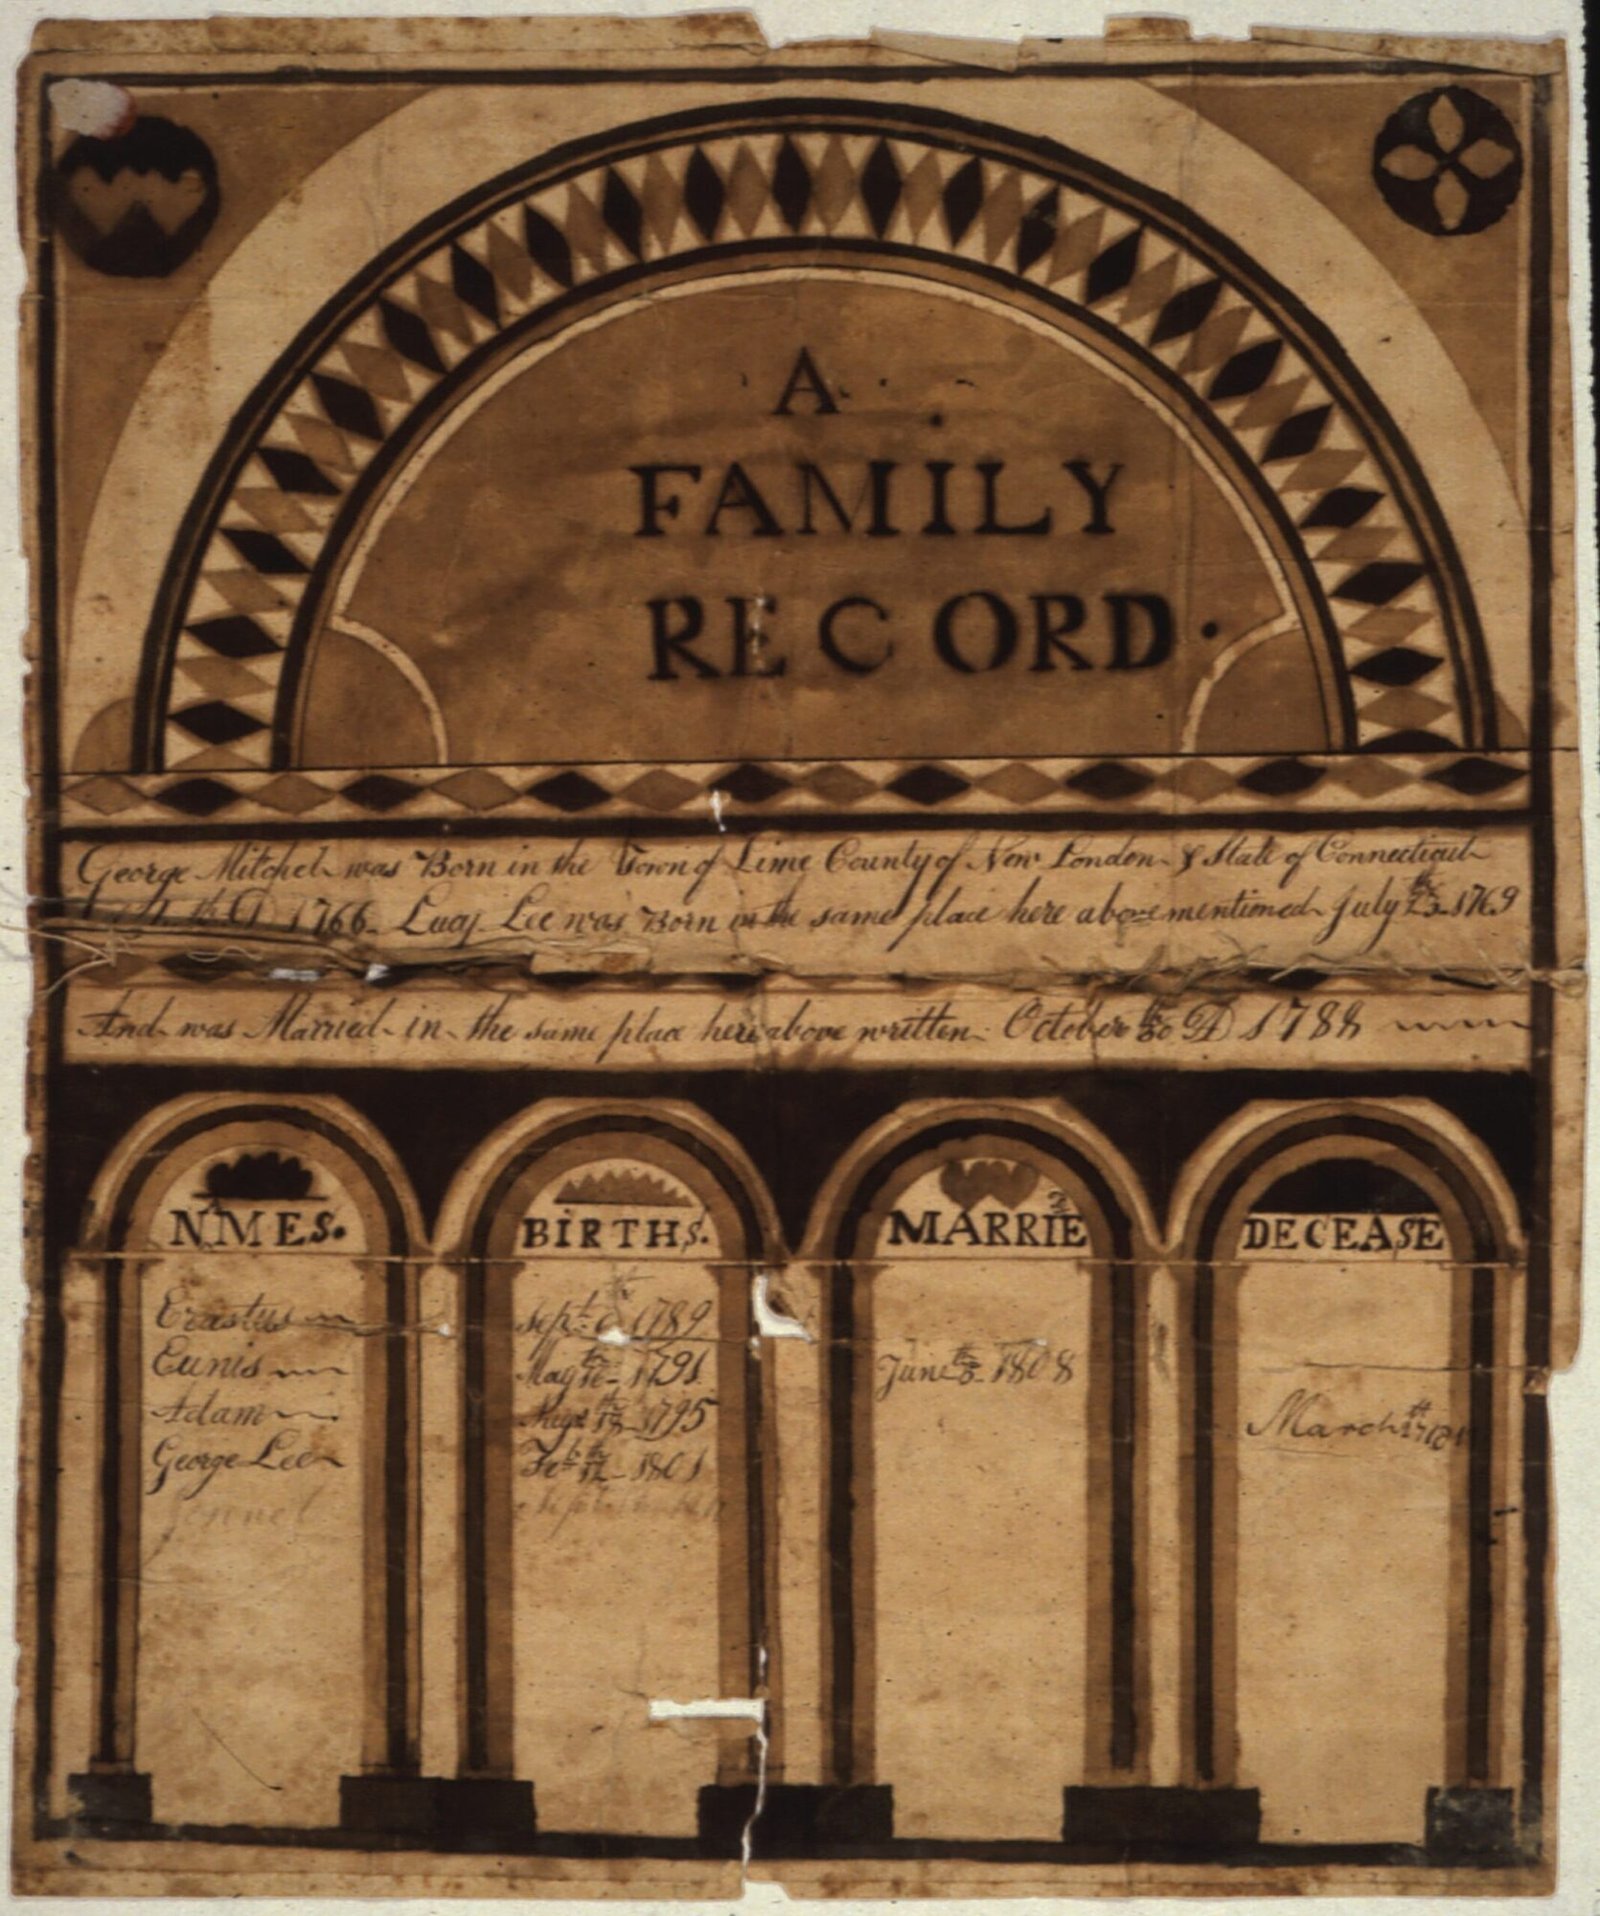 A
FAMILY
RECORD.
George Mitchel was Born in the Town of Lime County of New London & State of Connecticut
1766 Lucy Lee was Born in the same place here above mentioned July 23th 1769
And was Married in the same place here above written October 30th AD 1788
NAMES.
BIRTHS.
MARRIED
DECEASE
Erastus
Septr 1789
Eunis
May 1791
June 1808
Adam
1795
March
George Lee
Feb 1801